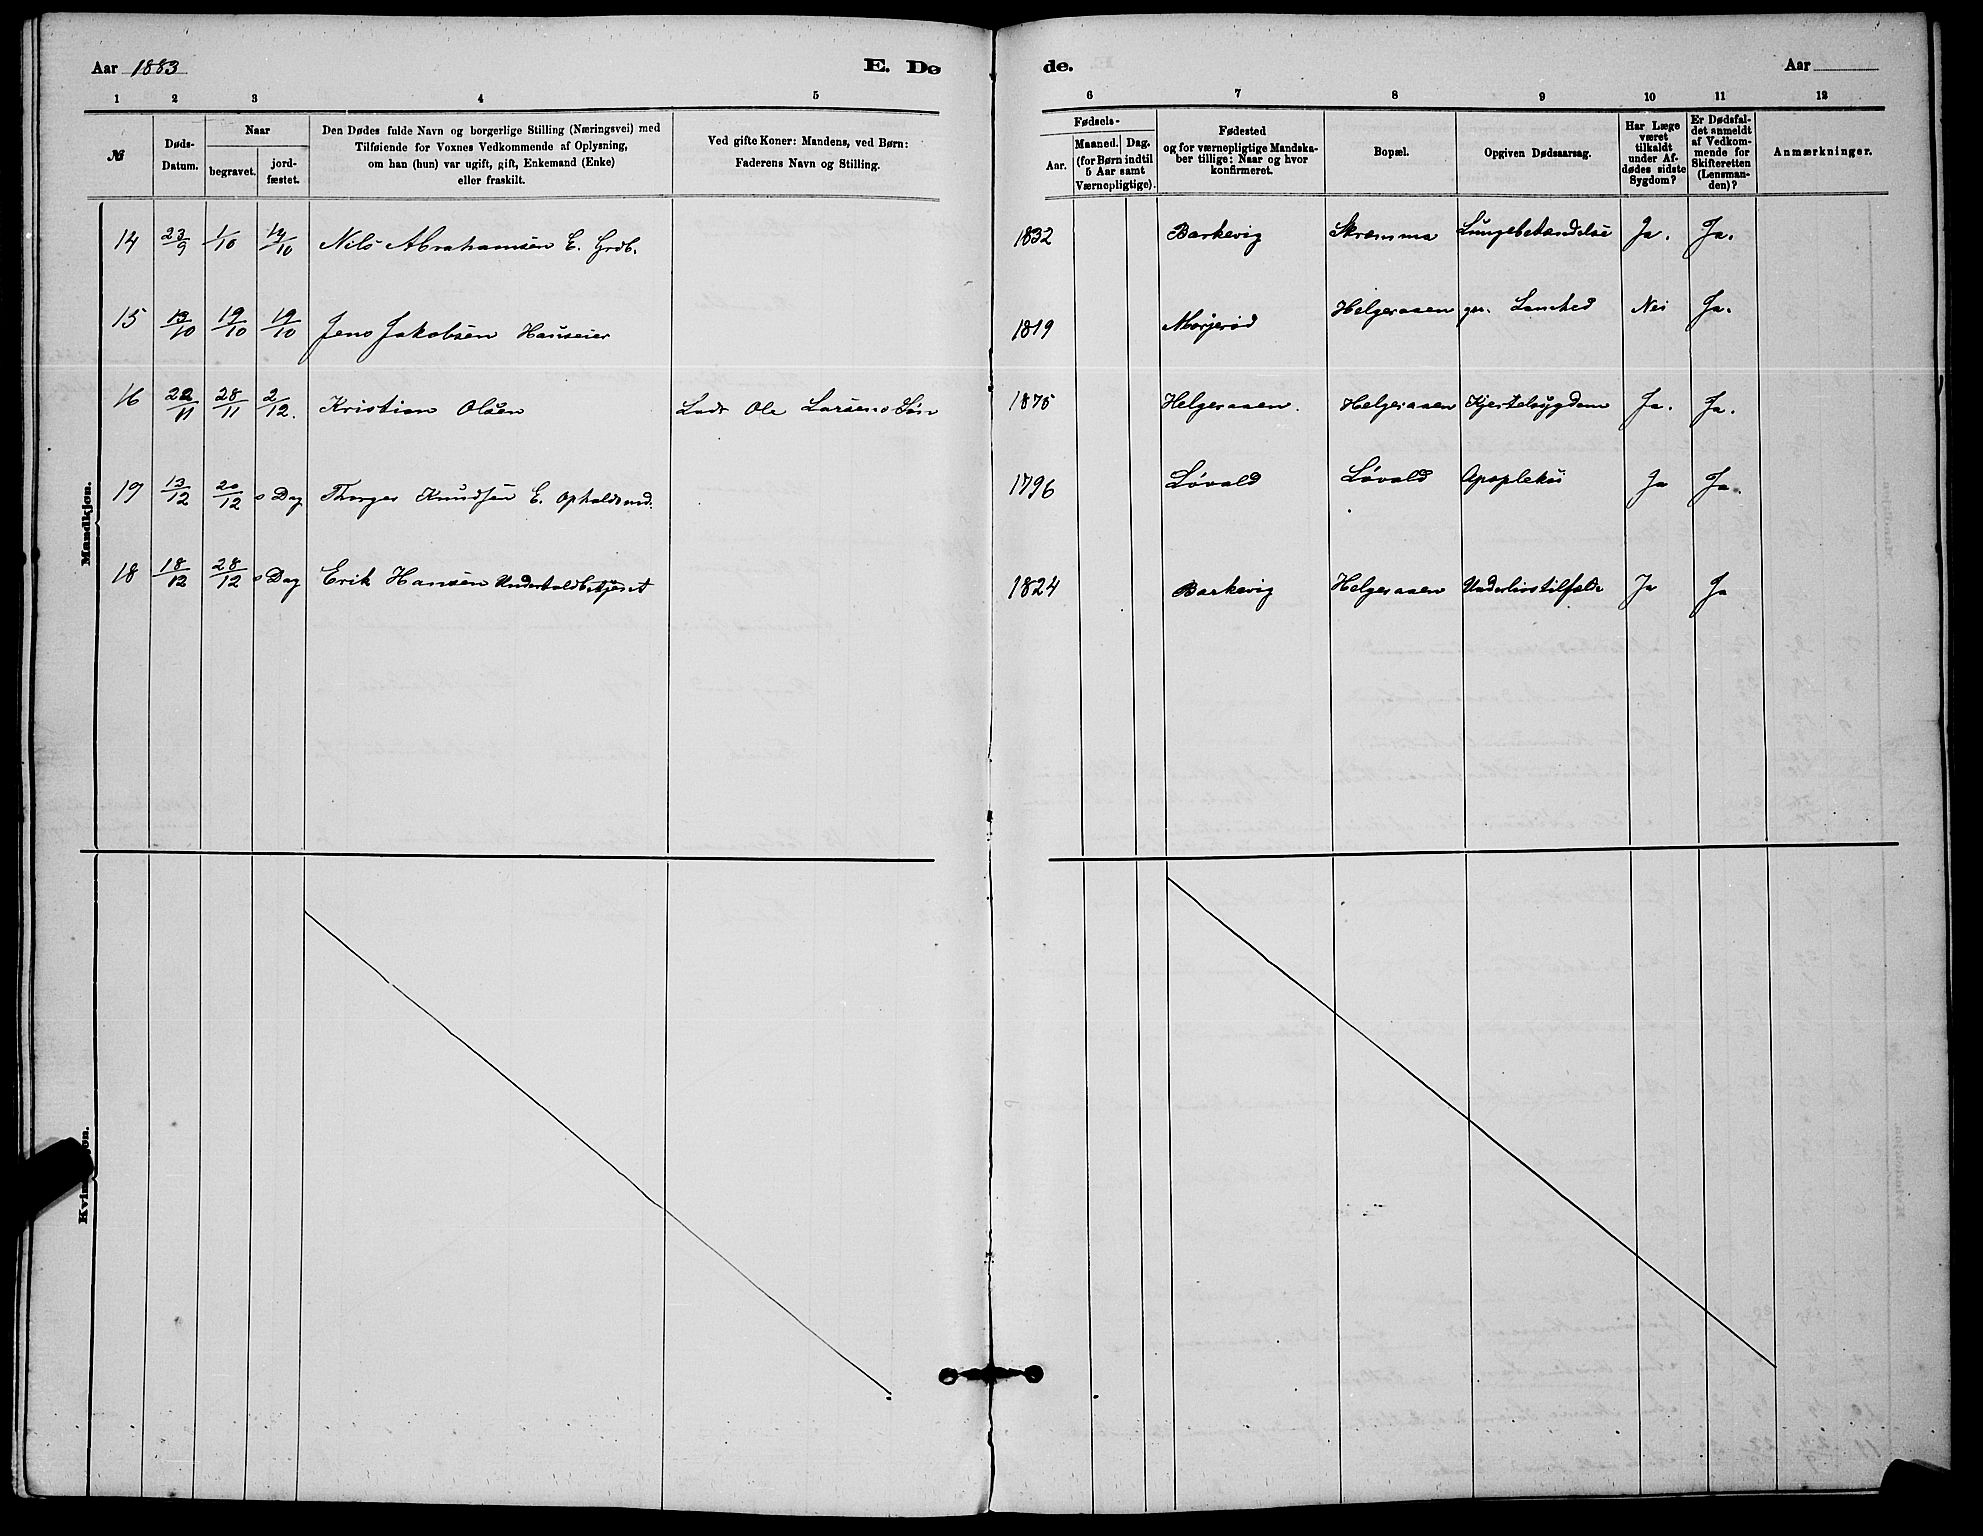 Aar 1883 E. Dø
1 2 3 4 5
№
Døds-Datum.
Naar
begravet.
jord-fæstet.
Den Dødes fulde Navn og borgerlige Stilling (Næringsvei) med
Tilføiende for Voxnes Vedkommende af Oplysning,
om han (hun) var ugift, gift, Enkemand (Enke)
eller fraskilt.
Ved gifte Koner: Mandens, ved Børn:
Faderens Navn og Stilling.
Mandkjøn.
14 23/9 1/10 14/10 Nils Abrahamsen E. Grdb.
15 13/10 19/10 19/10 Jens Jakobsen Huseier
16 22/11 28/11 2/12. Kristian Olsen Lods Ole Larsens Søn
19 13/12 20/12 s Dag Thorger Knudsen E. Opholdsmd.
18 18/12 28/12 s Dag Erik Hansen
de. Aar
6 7 8 9 10 11 12
Fødsels-
Aar.
Maaned. Dag.
(for Børn indtil
5 Aar samt
Værnepligtige).
Fødested
og for værnepligtige Mandska-
ber tillige: Naar og hvor
konfirmeret.
Bopæl.
Opgiven Dødsaarsag.
Har Læge
været
tilkaldt
under Af-
dødes sidste
Sygdom?
Er Dødsfal-
det anmeldt
af Vedkom-
mende for
Skifteretten
(Lensman-
den)?
Anmærkninger.
1832 Barkevig Skramma Lungebetændelse Ja. Ja.
1819 Morjerød Helgeraaen Nei Ja.
1875 Helgeraaen. Helgeraaen Kjertelsygdom Ja. Ja.
1796 Løvald Løvald Apopleksi Ja Ja.
1824 Barkevig Helgeraaen Underlivstilfælde Ja Ja